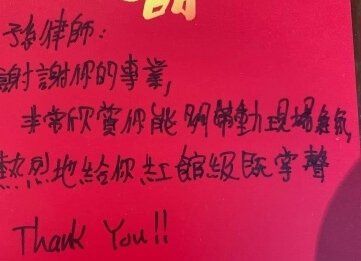 孫律師：
謝謝你的專業，
非常欣賞你能夠帶動現場氣氛，
熱烈地給你紅館級既掌聲
Thank You!!